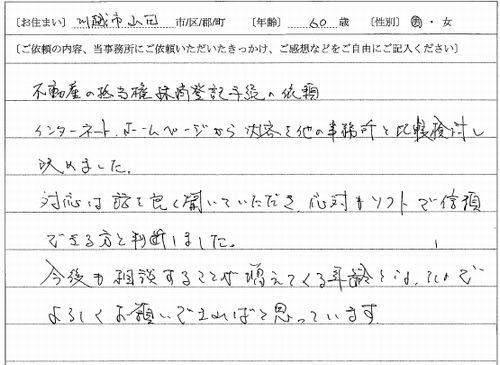 〔お住まい〕 川越市山田 市/区/郡/町 〔年齢〕 60 歳 〔性別〕 男・女
〔ご依頼の内容、当事務所にご依頼いただいたきっかけ、ご感想などをご自由にご記入ください〕
不動産の抵当権抹消登記手続の依頼
インターネット、ホームページから内容を他の事務所と比較検討し
決めました。
対応は話を良く聞いていただき、応対もソフトで信頼
できる方と判断しました。
今後も相談することが増えてくる年齢
よろしくお願いできればと思っています